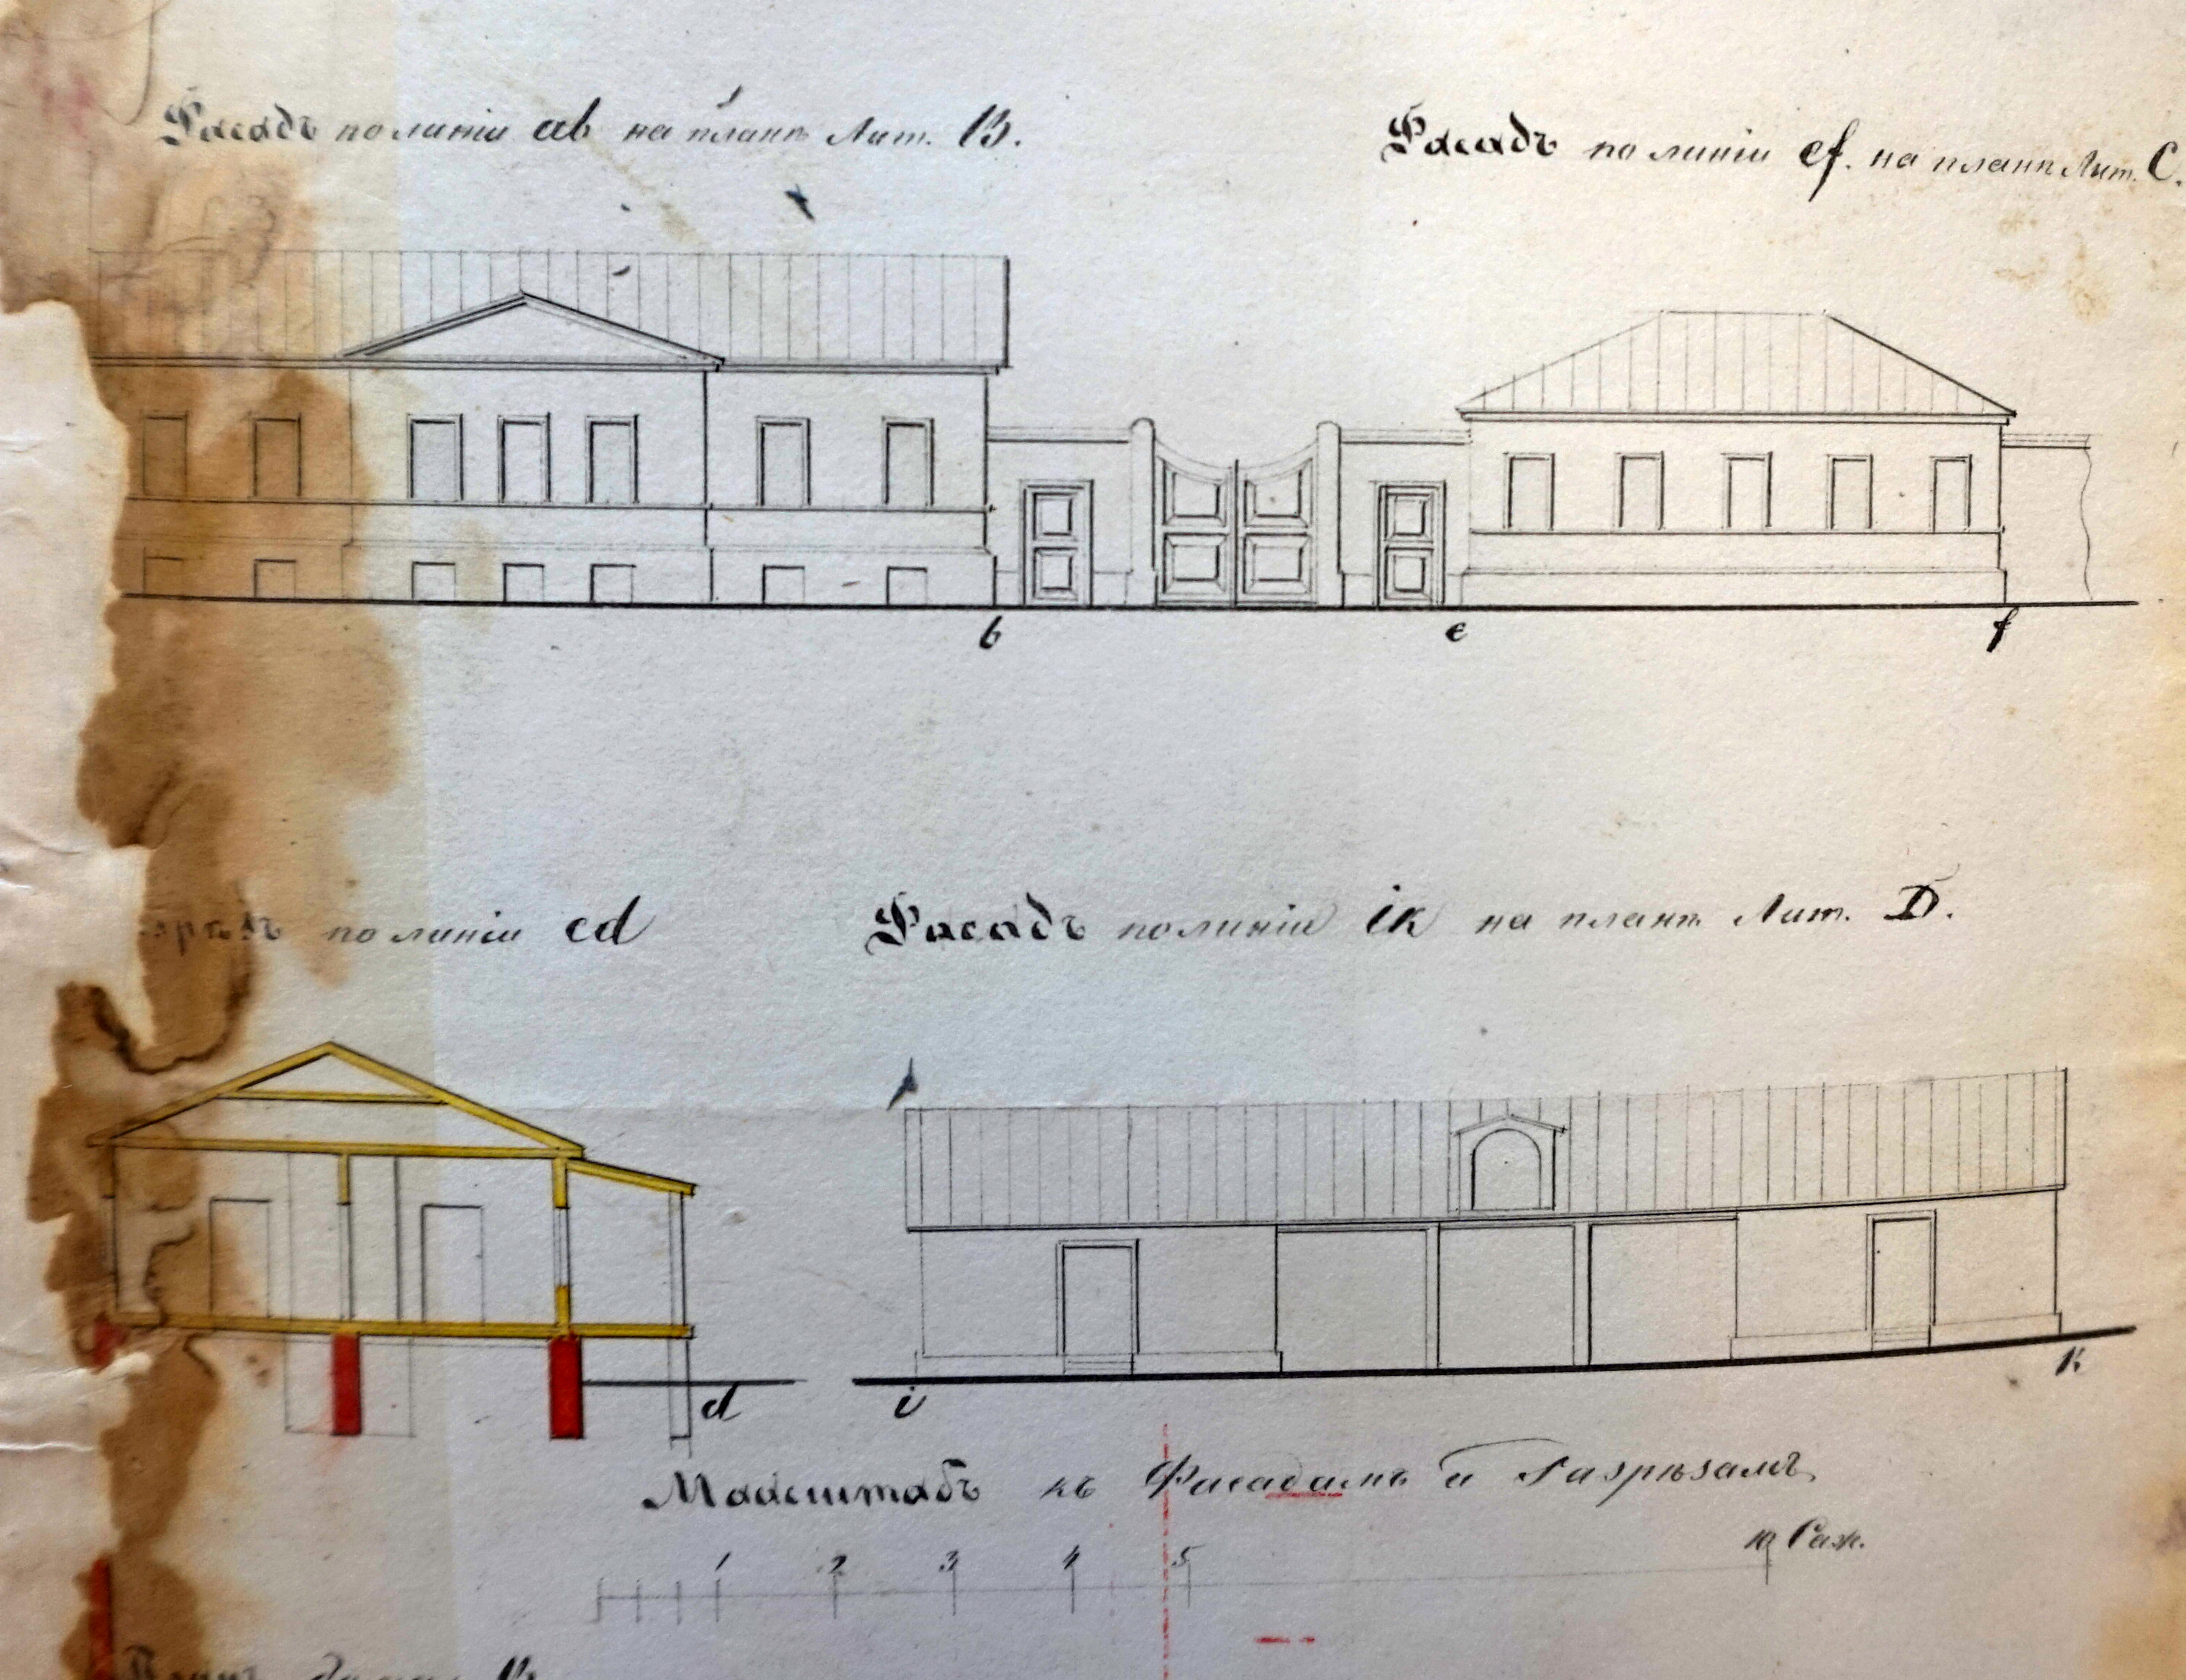 Фасадъ по линіи ab на планѣ Лит. B.
Фасадъ по линіи ef. на планѣ Лит. C.
b e f
по линіи cd
Фасадъ по линіи ik на планѣ Лит. D.
d i k
Масштабъ къ Фасадамъ и Разрѣзамъ
1 2 3 4 5 10 Саж.